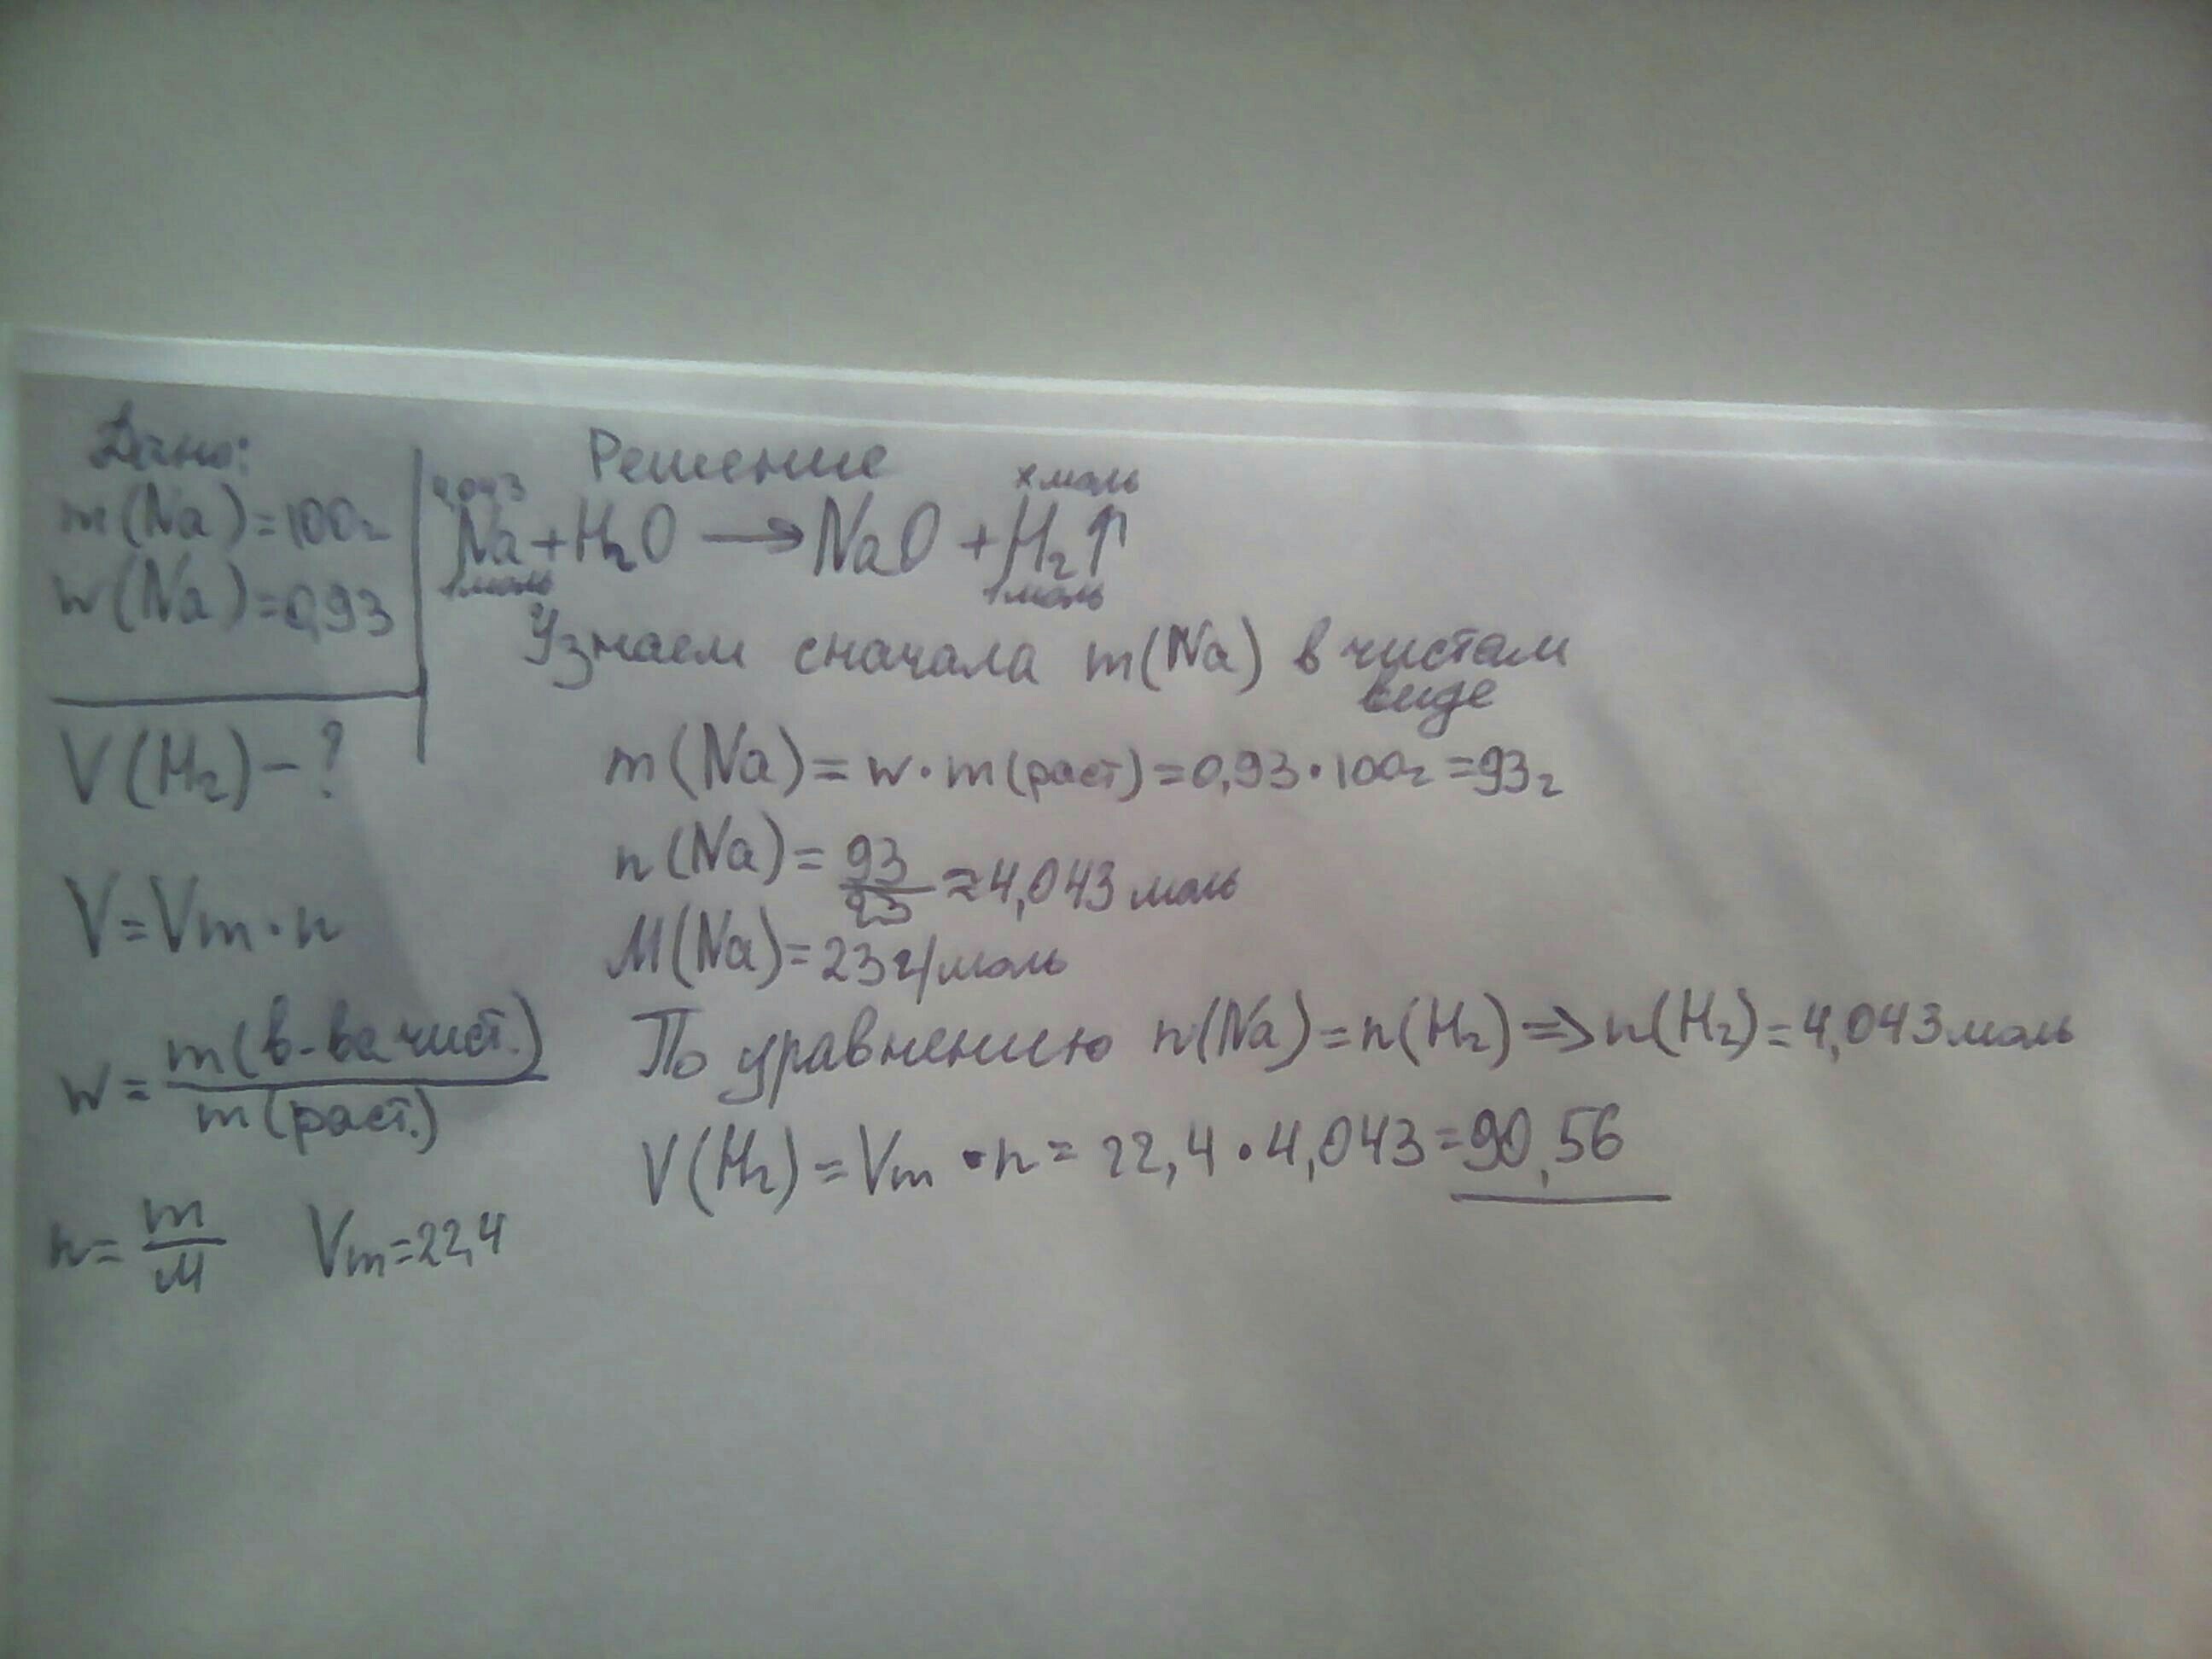 Дано:
m(Na)=100г
w(Na)=0,93
V(H₂)-?
V=Vm·n
w= m(в-ва чист.)
m(раст.)
n= m
M
Vm=22,4
Решение
4,043
x моль
Na+H₂O → NaO + H₂↑
1моль
1моль
Узнаем сначала m(Na) в чистом
виде
m(Na)=w·m(раст)=0,93·100г=93г
n(Na)= 93
23 ≈4,043 моль
M(Na)=23г/моль
По уравнению n(Na)=n(H₂)=>n(H₂)=4,043моль
V(H₂)=Vm·n=22,4·4,043=90,56